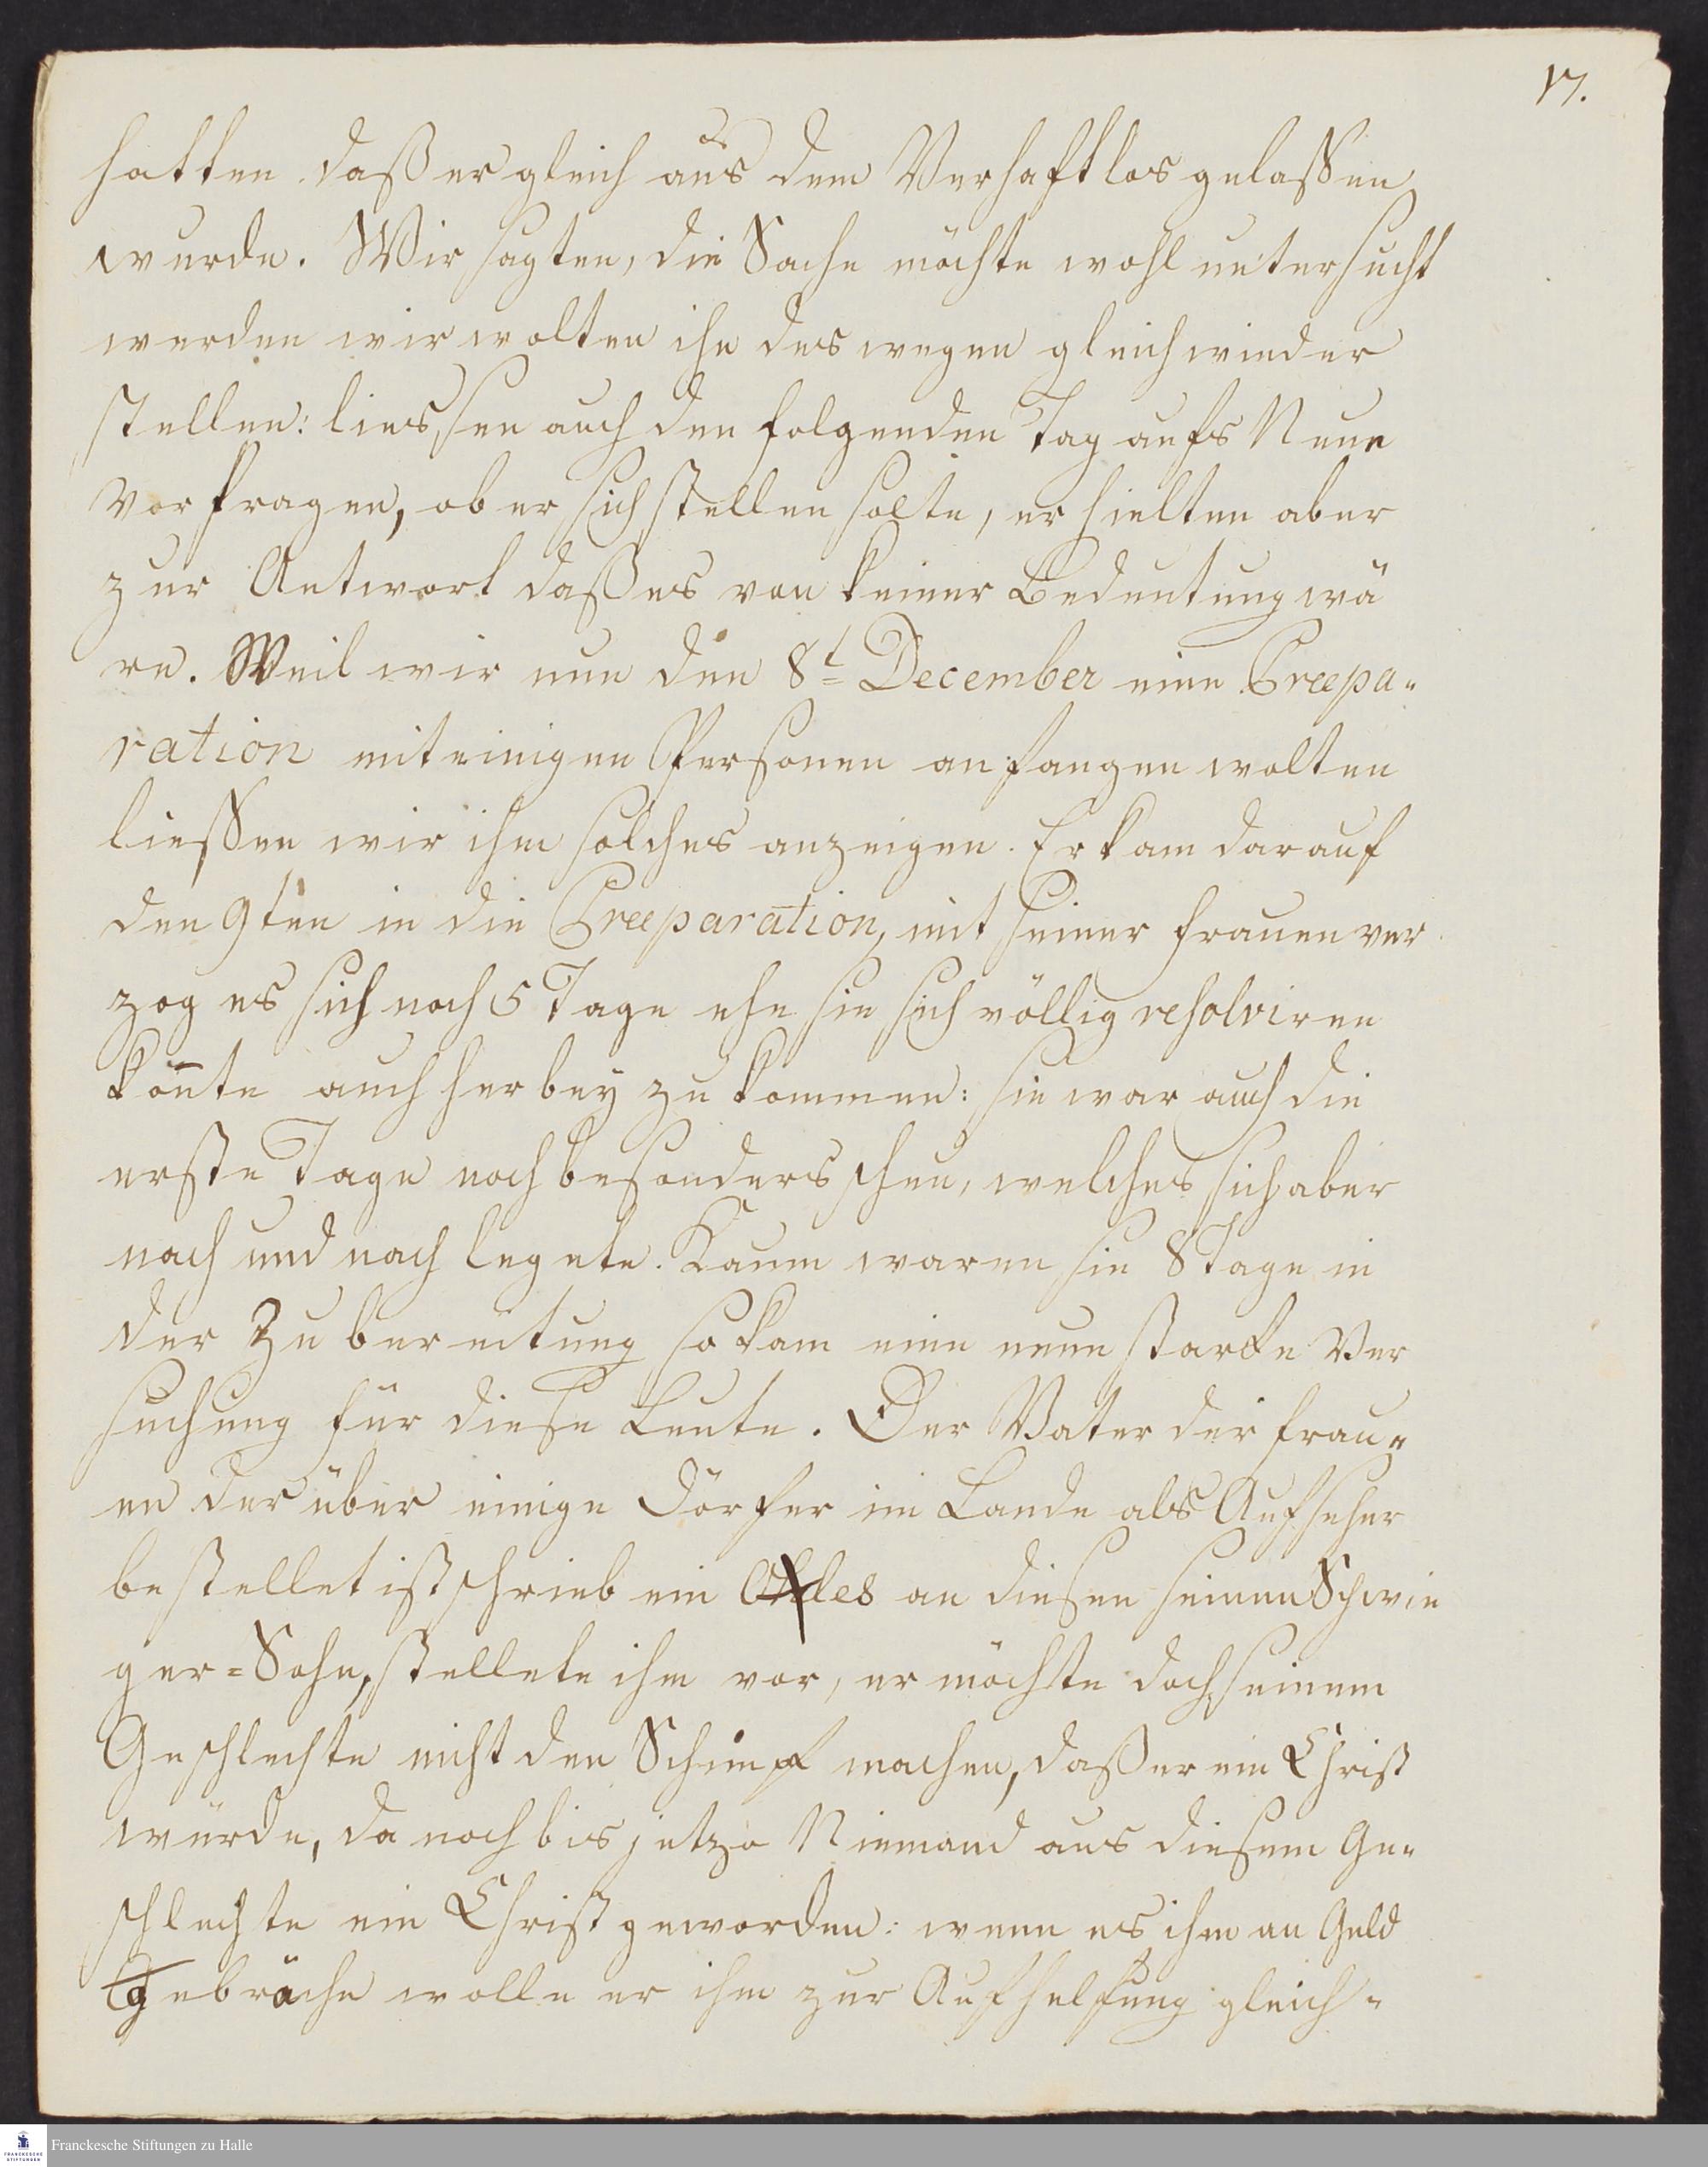 17.
hatten daß er gleich aus dem Verhaft los gelaßen
wurde. Wir sagten, die Sache möchte wohl untersucht
werden wir wolten ihn des wegen gleich wieder
stellen: liessen auch den folgenden Tag aufs Neue
vorfragen, ob er sich stellen solte, erhielten aber
zur Antwort daß es von keiner Bedeutung wä
re. Weil wir nun den 8t December eine Præpa-
ration mit einigen Personen anfangen wolten
ließen wir ihm solches anzeigen. Er kam darauf
den 9ten in die Præparation, mit seiner Frauen ver
zog es sich noch 5 Tage ehe sie sich völlig resolviren
kon̄te auch herbey zu kommen: sie war auch die
erste Tage noch besonders scheu, welches sich aber
nach und nach legete. Kaum waren sie 8 Tage in
der Zubereitung so kam eine neue starke Ver
suchung für diese Leute. Der Vater der Frau-
en der über einige Dörfer im Lande als Aufseher
bestellet ist schrieb ein Oles an diesen seinen Schwie
ger-Sohn, stellete ihm vor, er möchte doch seinem
Geschlechte nicht den Schimpf machen, daß er ein Christ
würde, da noch bis jetzo Niemand aus diesem Ge-
schlechte ein Christ geworden: wenn es ihm an Geld
gebräche wolle er ihm zur Aufhelfung gleich-
Franckesche Stiftungen zu Halle